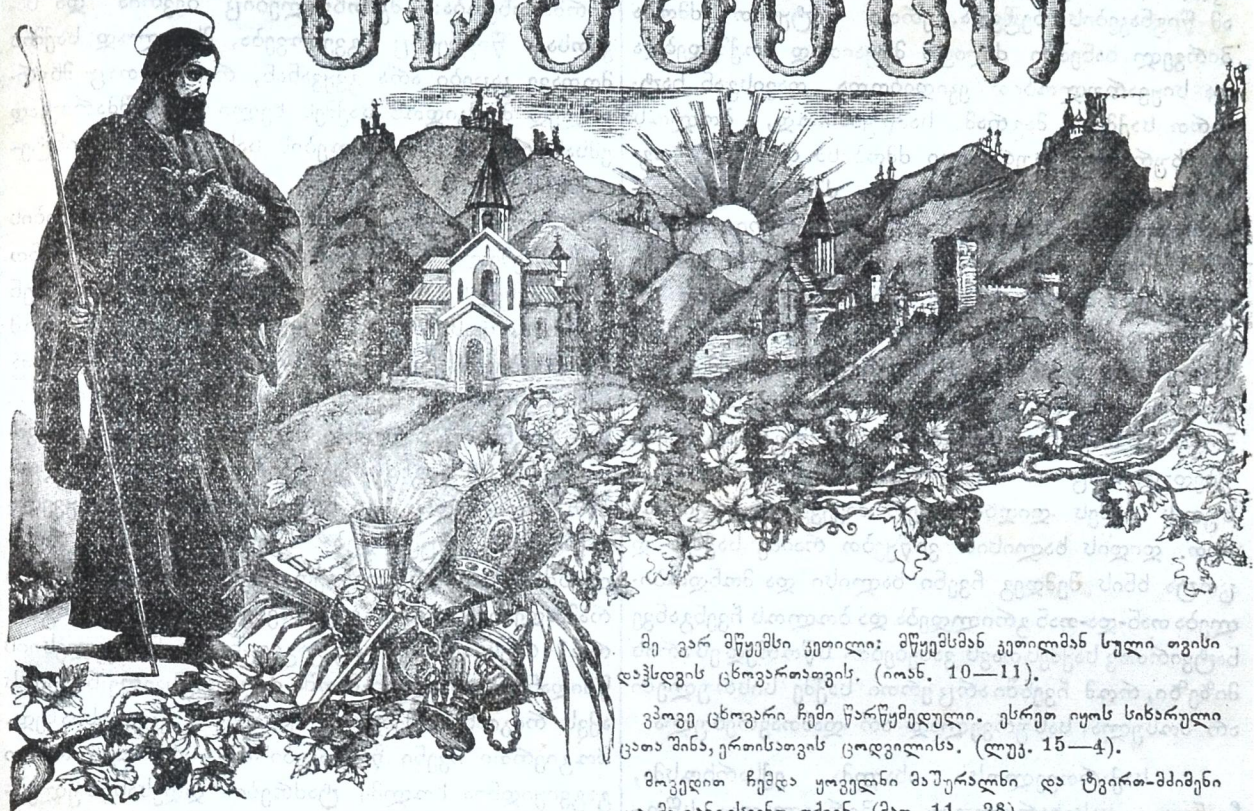 მე ვარ მწყემსი კეთილი: მწყემსმან კეთილმან სული თვისი
დაჰსდვის ცხოვართათვის. (იოან. 10—11).
ვპოვე ცხოვარი ჩემი წარწყმედული. ესრეთ იყოს სიხარული
ცათა შინა, ერთისათვის ცოდვილისა. (ლუკ. 15—4).
მოვედით ჩემდა ყოველნი მაშურალნი და ტვირთ-მძიმენი
(მათ. 11—28)